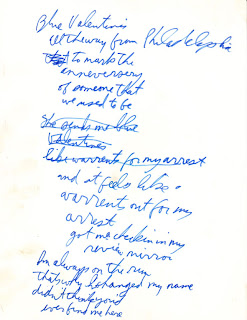 Blue Valentines
all the way from Philadelphia
to mark the
anneversery
of someone that
we used to be
She sends me blue
Valentines
like warrents for my arrest
and it feels like a
warrent out for my
arrest
got me checkin in my
review mirror
Im always on the run
thats why I changed my name
didn't think you'd
ever find me here